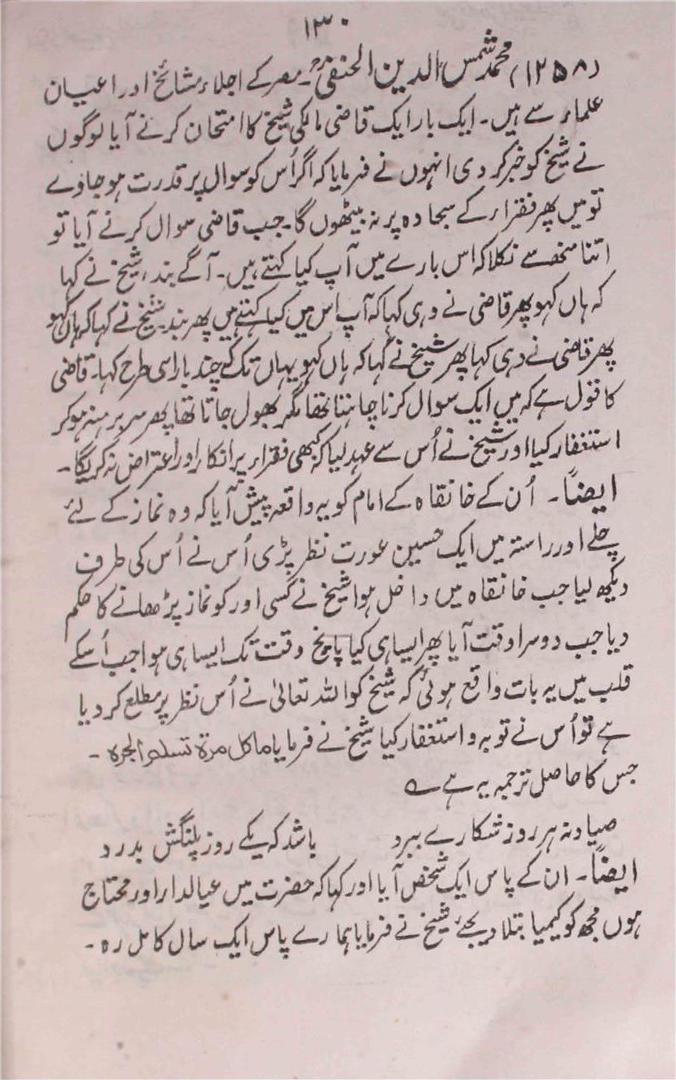 ۱۳۰
(۱۲۵۸) محمد شمس الدین الحنفیؒ۔ مصر کے اجلاء مشائخ اور اعیان
علماء سے ہیں۔ ایک بار ایک قاضی مالکی شیخ کا امتحان کرنے آیا لوگوں
نے شیخ کو خبر کر دی انہوں نے فرمایا کہ اگر اُس کو سوال پر قدرت ہو جاوے
تو میں پھر فقراء کے سجادہ پر نہ بیٹھوں گا۔ جب قاضی سوال کرنے آیا تو
اتنا منھ سے نکلا کہ اس بارے میں آپ کیا کہتے ہیں۔ آگے بند، شیخ نے کہا
کہ ہاں کہو پھر قاضی نے وہی کہا کہ آپ اس میں کیا کہتے ہیں پھر بند شیخ نے کہا کہ ہاں کہو
پھر قاضی نے وہی کہا پھر شیخ نے کہا کہ ہاں کہو یہاں تک کہ چند بار اسی طرح کہا۔ قاضی
کا قول ہے کہ میں ایک سوال کرنا چاہتا تھا مگر بھول جاتا تھا پھر سر برہنہ ہو کر
استغفار کیا اور شیخ نے اُس سے عہد لیا کہ کبھی فقراء پر انکار اور اعتراض نہ کریگا۔
ایضاً۔ اُن کے خانقاہ کے امام کو یہ واقعہ پیش آیا کہ وہ نماز کے لئے
چلے اور راستہ میں ایک حسین عورت نظر پڑی اُس نے اُس کی طرف
دیکھ لیا جب خانقاہ میں داخل ہوا شیخ نے کسی اور کو نماز پڑھانے کا حکم
دیا جب دوسرا وقت آیا پھر ایسا ہی کیا پانچ وقت تک ایسا ہی ہوا جب اُسکے
قلب میں یہ بات واقع ہوئی کہ شیخ کو اللہ تعالیٰ نے اُس نظر پر مطلع کر دیا
ہے تو اُس نے توبہ و استغفار کیا شیخ نے فرمایا ماکل مرۃ تسلم الجرہ۔
جس کا حاصل ترجمہ یہ ہے ؎
صیاد نہ ہر روز شکارے ببرد باشد کہ یکے روز پلنگش بدرد
ایضاً۔ ان کے پاس ایک شخص آیا اور کہا کہ حضرت میں عیالدار اور محتاج
ہوں مجھ کو کیمیا بتلا دیجئے شیخ نے فرمایا ہمارے پاس ایک سال کامل رہ۔